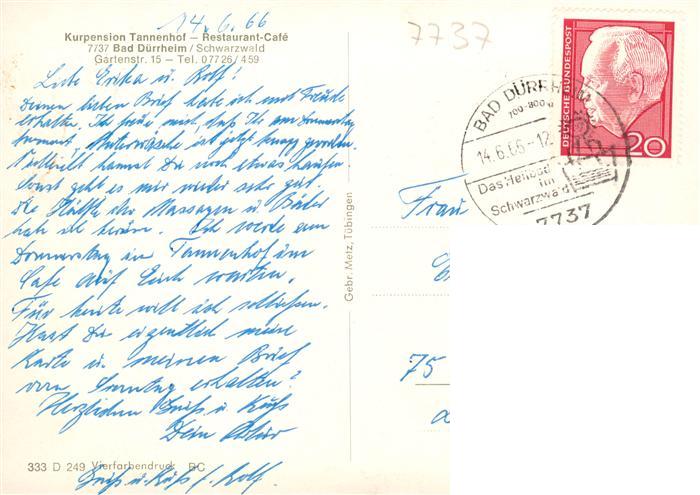 14.6.66
Kurpension Tannenhof – Restaurant-Café
7737 Bad Dürrheim / Schwarzwald
Gartenstr. 15 – Tel. 07726/459
Liebe Erika u. Rolf!
Deinen lieben Brief habe ich mit Freude
erhalten. Ich freue mich, daß Ihr am Donnerstag
kommt, Unterwäsche ist jetzt knapp geworden.
Vielleicht kannst Du noch etwas kaufen.
Sonst geht es mir weiter sehr gut.
Die Hälfte der Massagen u. Bäder
hab ich herum. Ich werde am
Donnerstag im Tannenhof im
Cafe auf Euch warten.
Für heute will ich schließen.
Hast Du eigentlich meine
Karte u. meinen Brief
vom Sonntag erhalten?
Herzlichen Gruß u. Kuß
Dein
Gruß u. Kuß f. Rolf
333 D 249 Vierfarbendruck BC
Gebr. Metz, Tübingen
7737
DEUTSCHE BUNDESPOST
20
BAD DÜRRHEIM
700-800 m
14.6.66-12
Das Heilbad
im
Schwarzwald
7737
Frau
75